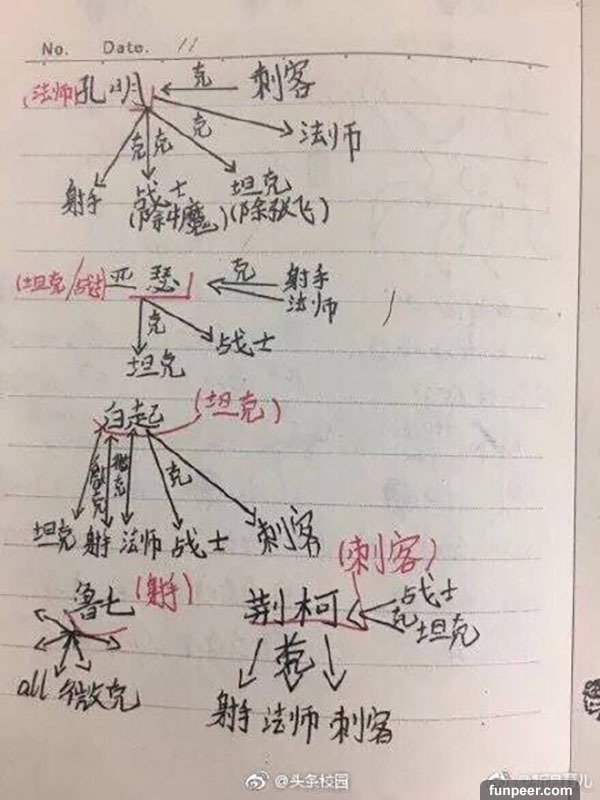 No. Date. //
(法师) 孔明 克 刺客
克 克 克 法师
射手 战士 坦克
(除牛魔) (除张飞)
(坦克/战士) 亚瑟 克 射手
法师
克 战士
坦克
白起 (坦克)
微克 微克 克
坦克 射手 法师 战士 刺客
(刺客)
鲁七 (射手) 荆柯 战士
克 坦克
all 微克 克
射手 法师 刺客
@头条校园
funpeer.com